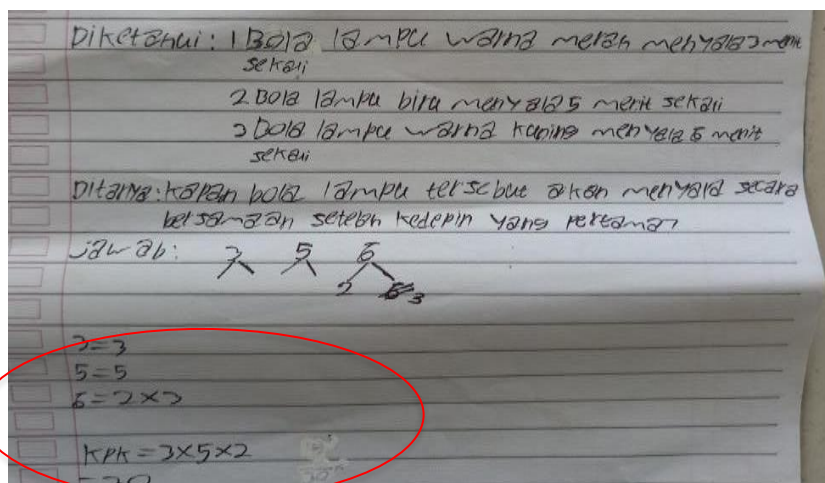 Diketahui: 1 Bola lampu warna merah menyala 3 menit
sekali
2 Bola lampu biru menyala 5 menit sekali
3 Bola lampu warna kuning menyala 6 menit
sekali
Ditanya: Kapan bola lampu tersebut akan menyala secara
bersamaan setelah kedepin yang pertama?
Jawab: 3 5 6
2 3
3=3
5=5
6=2×3
KPK=3×5×2
=30